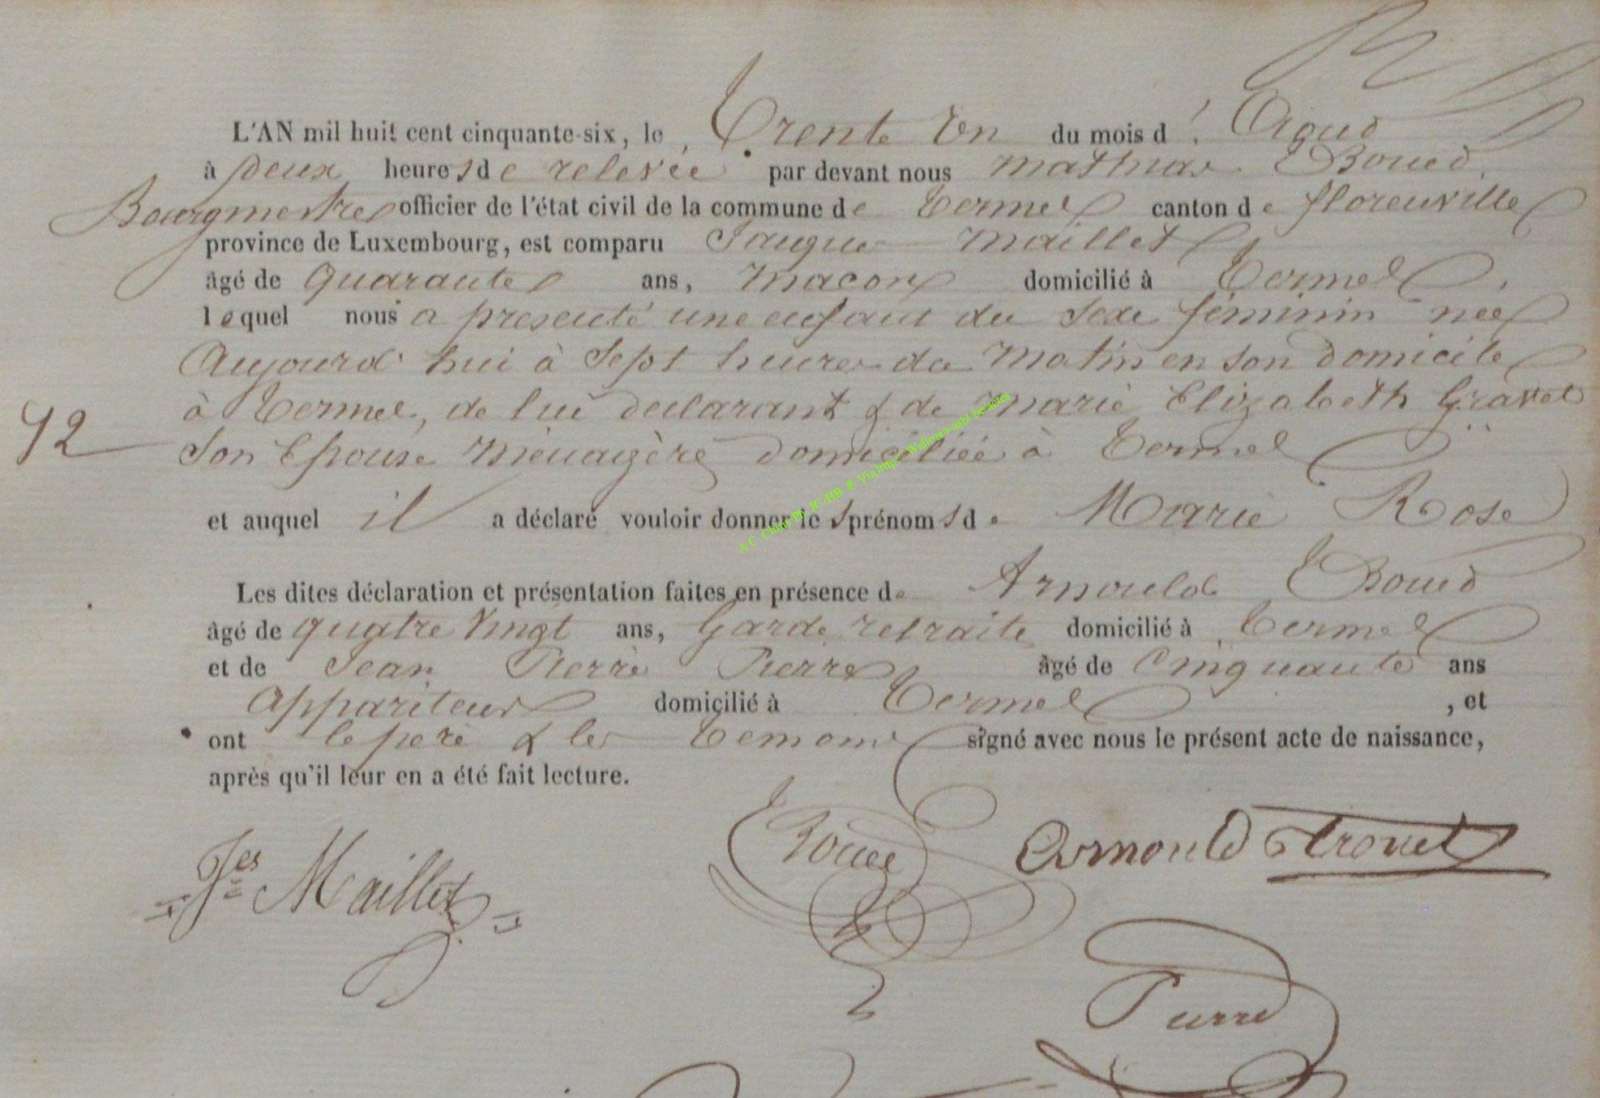 L'AN mil huit cent cinquante-six, le Trente Un du mois d' Aout
à Deux heures de relevée par devant nous Mathias Boued
Bourgmestre officier de l'état civil de la commune de Termes canton de florenville
province de Luxembourg, est comparu Jauque Maillet
âgé de quarante ans, Macon domicilié à Termes,
lequel nous a presenté une enfant du Sexe féminin née
Aujourd'hui à Sept heures du Matin en son domicile
à Termes, de lui declarant & de Marie Elizabeth Gravet
42
Son Epouse Ménagère domiciliée à Termes
et auquel il a déclaré vouloir donner les prénoms de Marie Rose
Les dites déclaration et présentation faites en présence de Arnould
âgé de quatre Vingt ans, Garde retraite domicilié à Termes
et de Jean Pierre Pierre âgé de Cinquante ans
Appariteur domicilié à Termes, et
ont le pere & les Temoins signé avec nous le présent acte de naissance,
après qu'il leur en a été fait lecture.
Jes Maillet
Arnould
Pierre